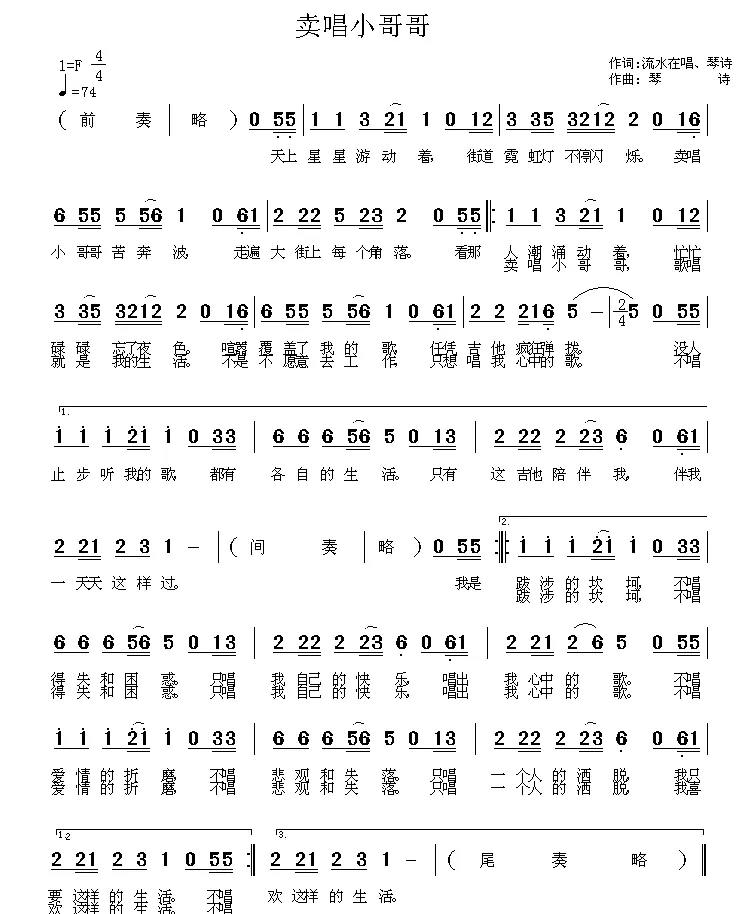 卖唱小哥哥
1=F 4/4
♩=74
作词:流水在唱、琴诗
作曲: 琴 诗
( 前 奏 | 略 ) 0 55 | 1 1 3 21 1 0 12 | 3 35 3212 2 0 16 |
天上 星 星 游 动 着, 街道 霓 虹灯 不停闪 烁。 卖唱
6 55 5 56 1 0 61 | 2 22 5 23 2 0 55 |: 1 1 3 21 1 0 12 |
小 哥哥 苦 奔 波, 走遍 大 街上 每 个角 落。 看那 人 潮 涌 动 着, 忙忙
卖 唱 小 哥 哥, 歌唱
3 35 3212 2 0 16 | 6 55 5 56 1 0 61 | 2 2 216 5 - | 2/4 5 0 55 |
碌 碌 忘了夜 色。 喧嚣 覆 盖了 我 的 歌, 任凭 吉 他 疯狂弹 拨。 没人
就 是 我的生 活。 不是 不 愿意 去 工 作, 只想 唱 我 心中的 歌。 不唱
1.
1 1 1 21 1 0 33 | 6 6 6 56 5 0 13 | 2 22 2 23 6 0 61 |
止 步 听 我的 歌, 都有 各 自 的 生 活。 只有 这 吉他 陪 伴 我, 伴我
2 21 2 3 1 - | ( 间 奏 | 略 ) 0 55 :| 2. 1 1 1 21 1 0 33 |
一 天天 这 样 过。 我是 跋 涉 的 坎 坷, 不唱
跋 涉 的 坎 坷, 不唱
6 6 6 56 5 0 13 | 2 22 2 23 6 0 61 | 2 22 2 6 5 0 55 |
得 失 和 困 惑。 只唱 我 自己 的 快 乐, 唱出 我 心中 的 歌。 不唱
得 失 和 困 惑。 只唱 我 自己 的 快 乐, 唱出 我 心中 的 歌。 不唱
1 1 1 21 1 0 33 | 6 6 6 56 5 0 13 | 2 22 2 23 6 0 61 |
爱 情 的 折 磨, 不唱 悲 观 和 失 落。 只唱 一 个人 的 洒 脱, 我只
爱 情 的 折 磨, 不唱 悲 观 和 失 落。 只唱 一 个人 的 洒 脱, 我喜
1.2. 3.
2 21 2 3 1 0 55 :| 2 21 2 3 1 - | ( 尾 奏 略 ) ||
要 这样 的 生 活。 不唱 欢 这样 的 生 活。
欢 这样 的 生 活。 不唱